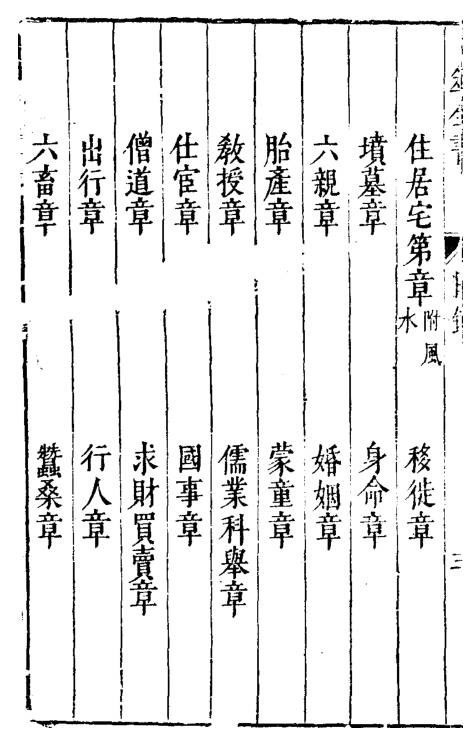 住居宅第章附風水 移徙章
墳墓章 身命章
六親章 婚姻章
胎產章 蒙童章
教授章 儒業科舉章
仕宦章 國事章
僧道章 求財買賣章
出行章 行人章
六畜章 蠶桑章
三